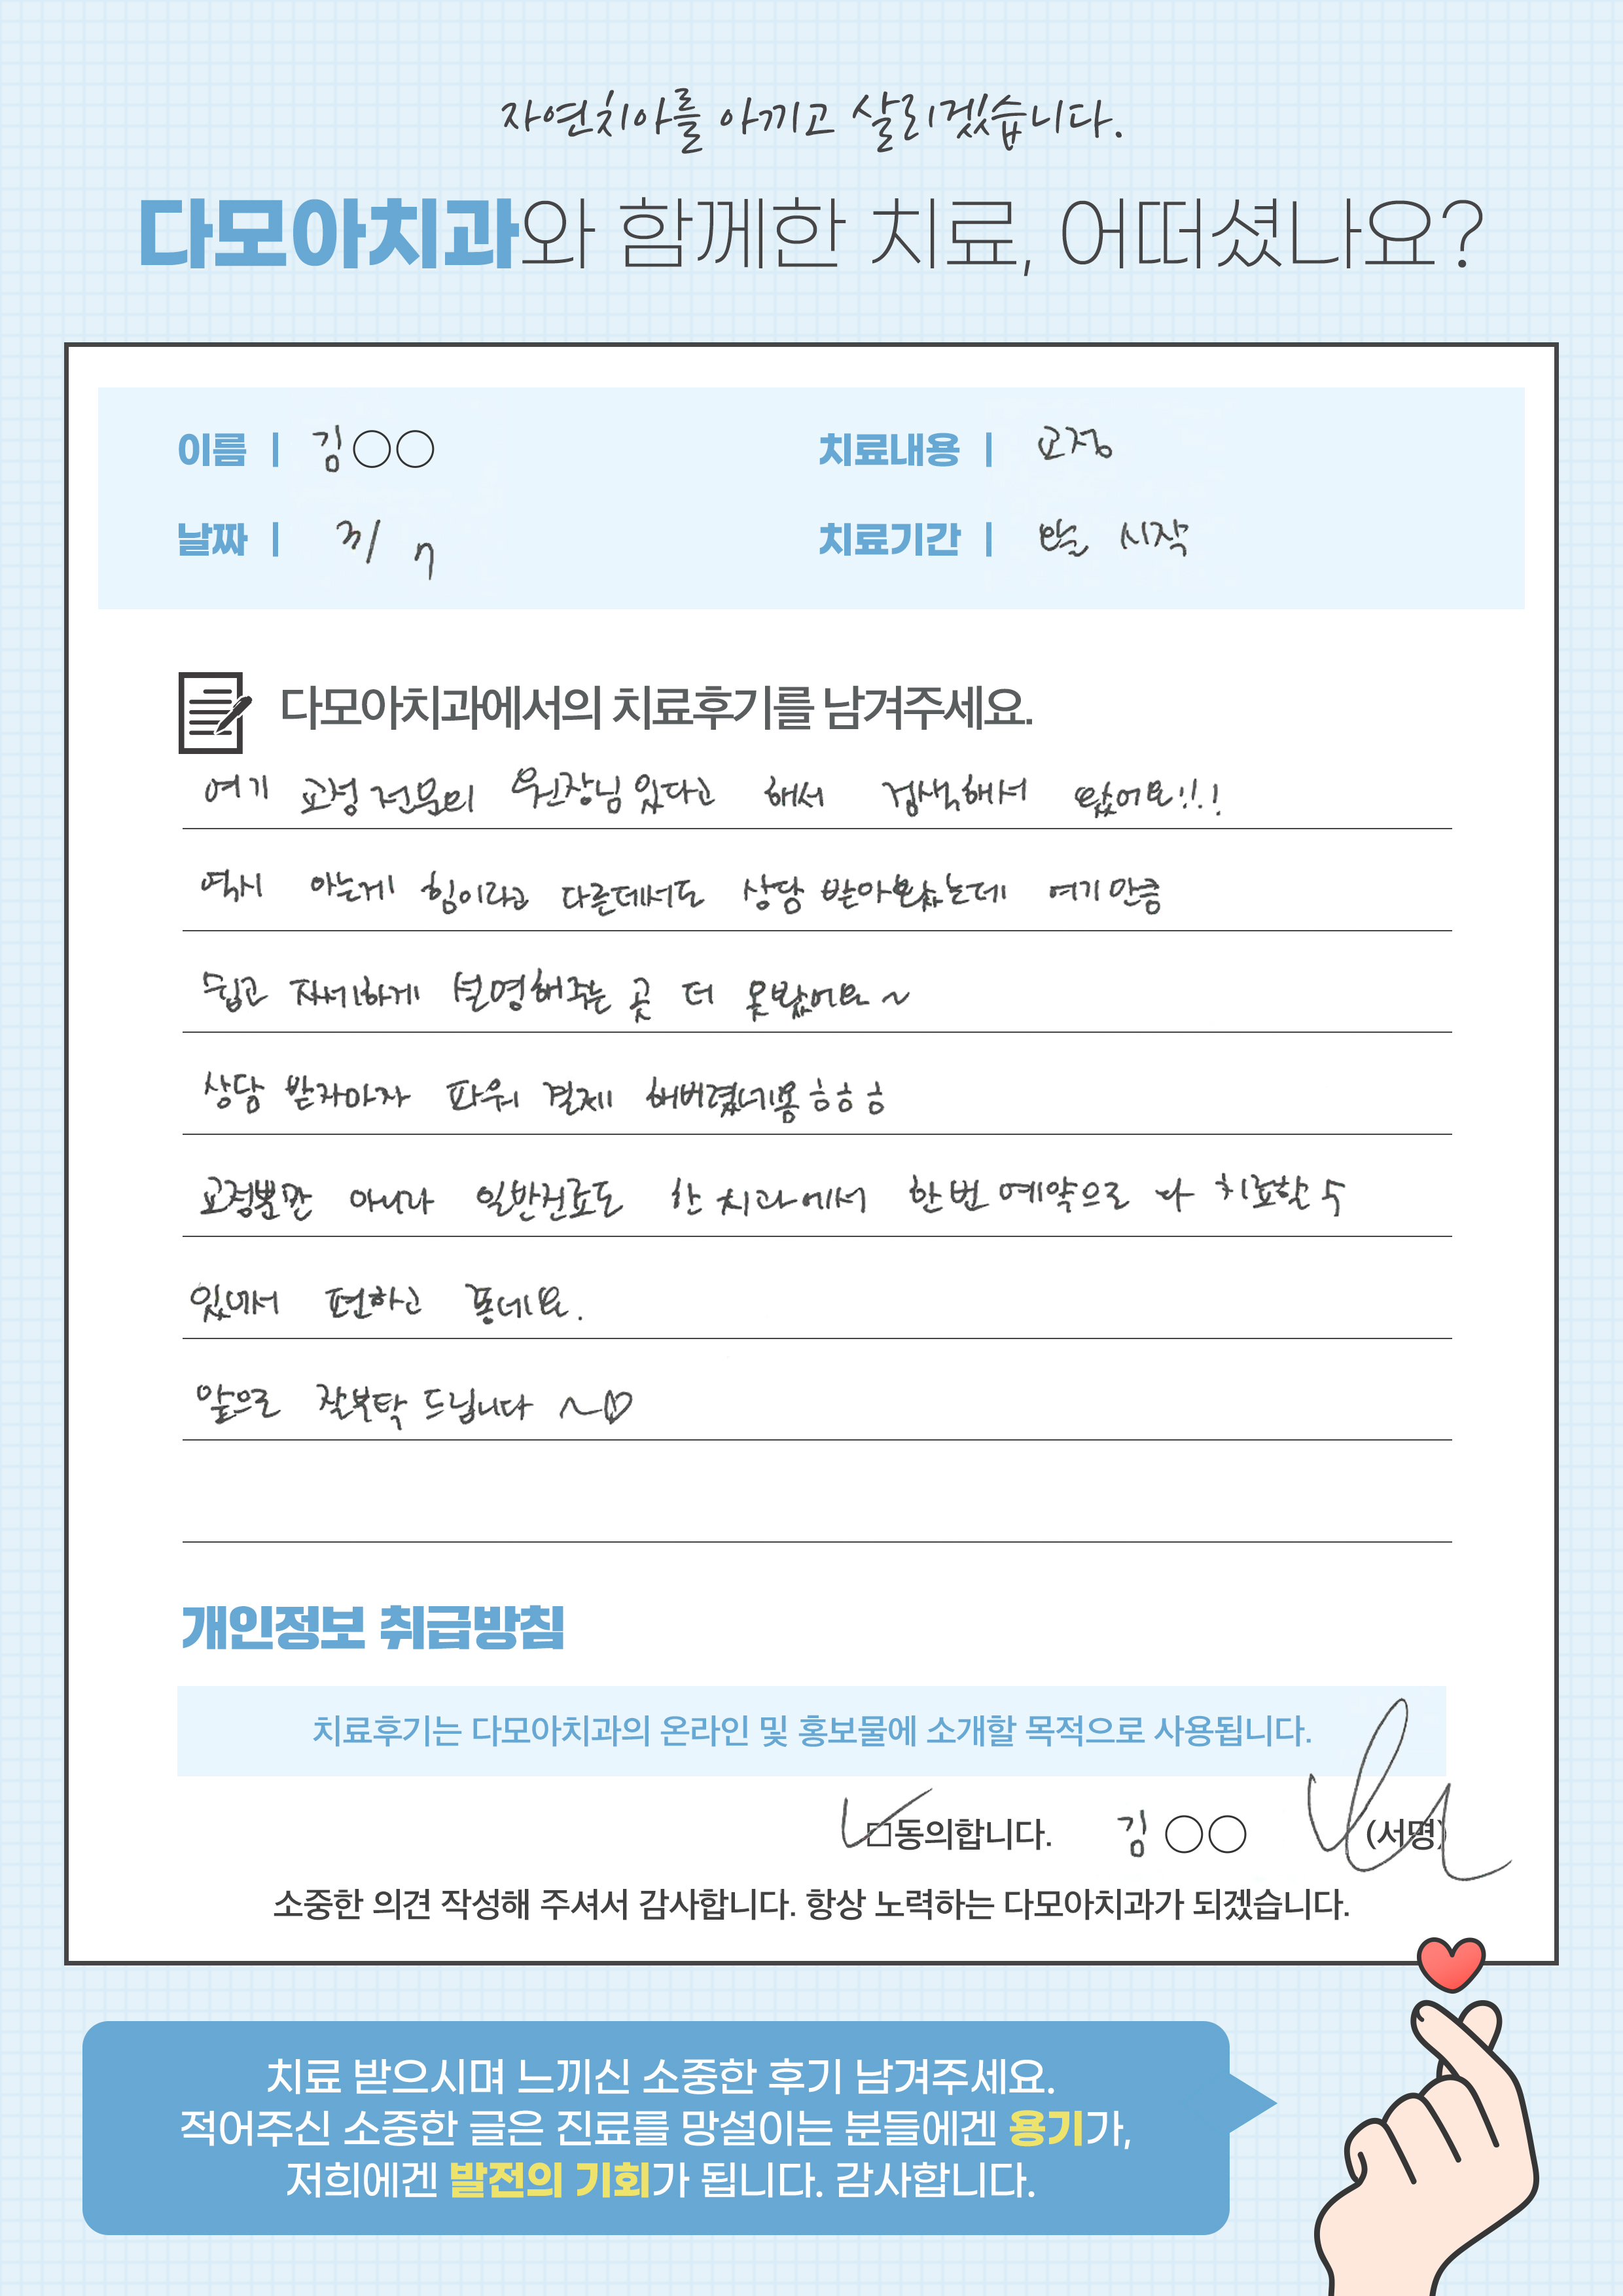 자연치아를 아끼고 살리겠습니다.
다모아치과와 함께한 치료, 어떠셨나요?
이름 | 김○○
치료내용 | 교정
날짜 | 3/ 7
치료기간 | 시작
다모아치과에서의 치료후기를 남겨주세요.
여기 교정 전문의 원장님 있다고 해서 검색해서 왔어요!!!
역시 아는게 힘이라고 다른데서도 상담 받아봤는데 여기만큼
쉽고 자세하게 설명해주는 곳 더 못봤어요~
상담 받자마자 파워 결제 해버렸네용ㅎㅎㅎ
교정뿐만 아니라 일반진료도 한 치과에서 한번 예약으로 다 치료할 수
있어서 편하고 좋네요.
앞으로 잘부탁 드립니다 ~♡
개인정보 취급방침
치료후기는 다모아치과의 온라인 및 홍보물에 소개할 목적으로 사용됩니다.
□동의합니다. 김 ○○ (서명)
소중한 의견 작성해 주셔서 감사합니다. 항상 노력하는 다모아치과가 되겠습니다.
치료 받으시며 느끼신 소중한 후기 남겨주세요.
적어주신 소중한 글은 진료를 망설이는 분들에겐 용기가,
저희에겐 발전의 기회가 됩니다. 감사합니다.